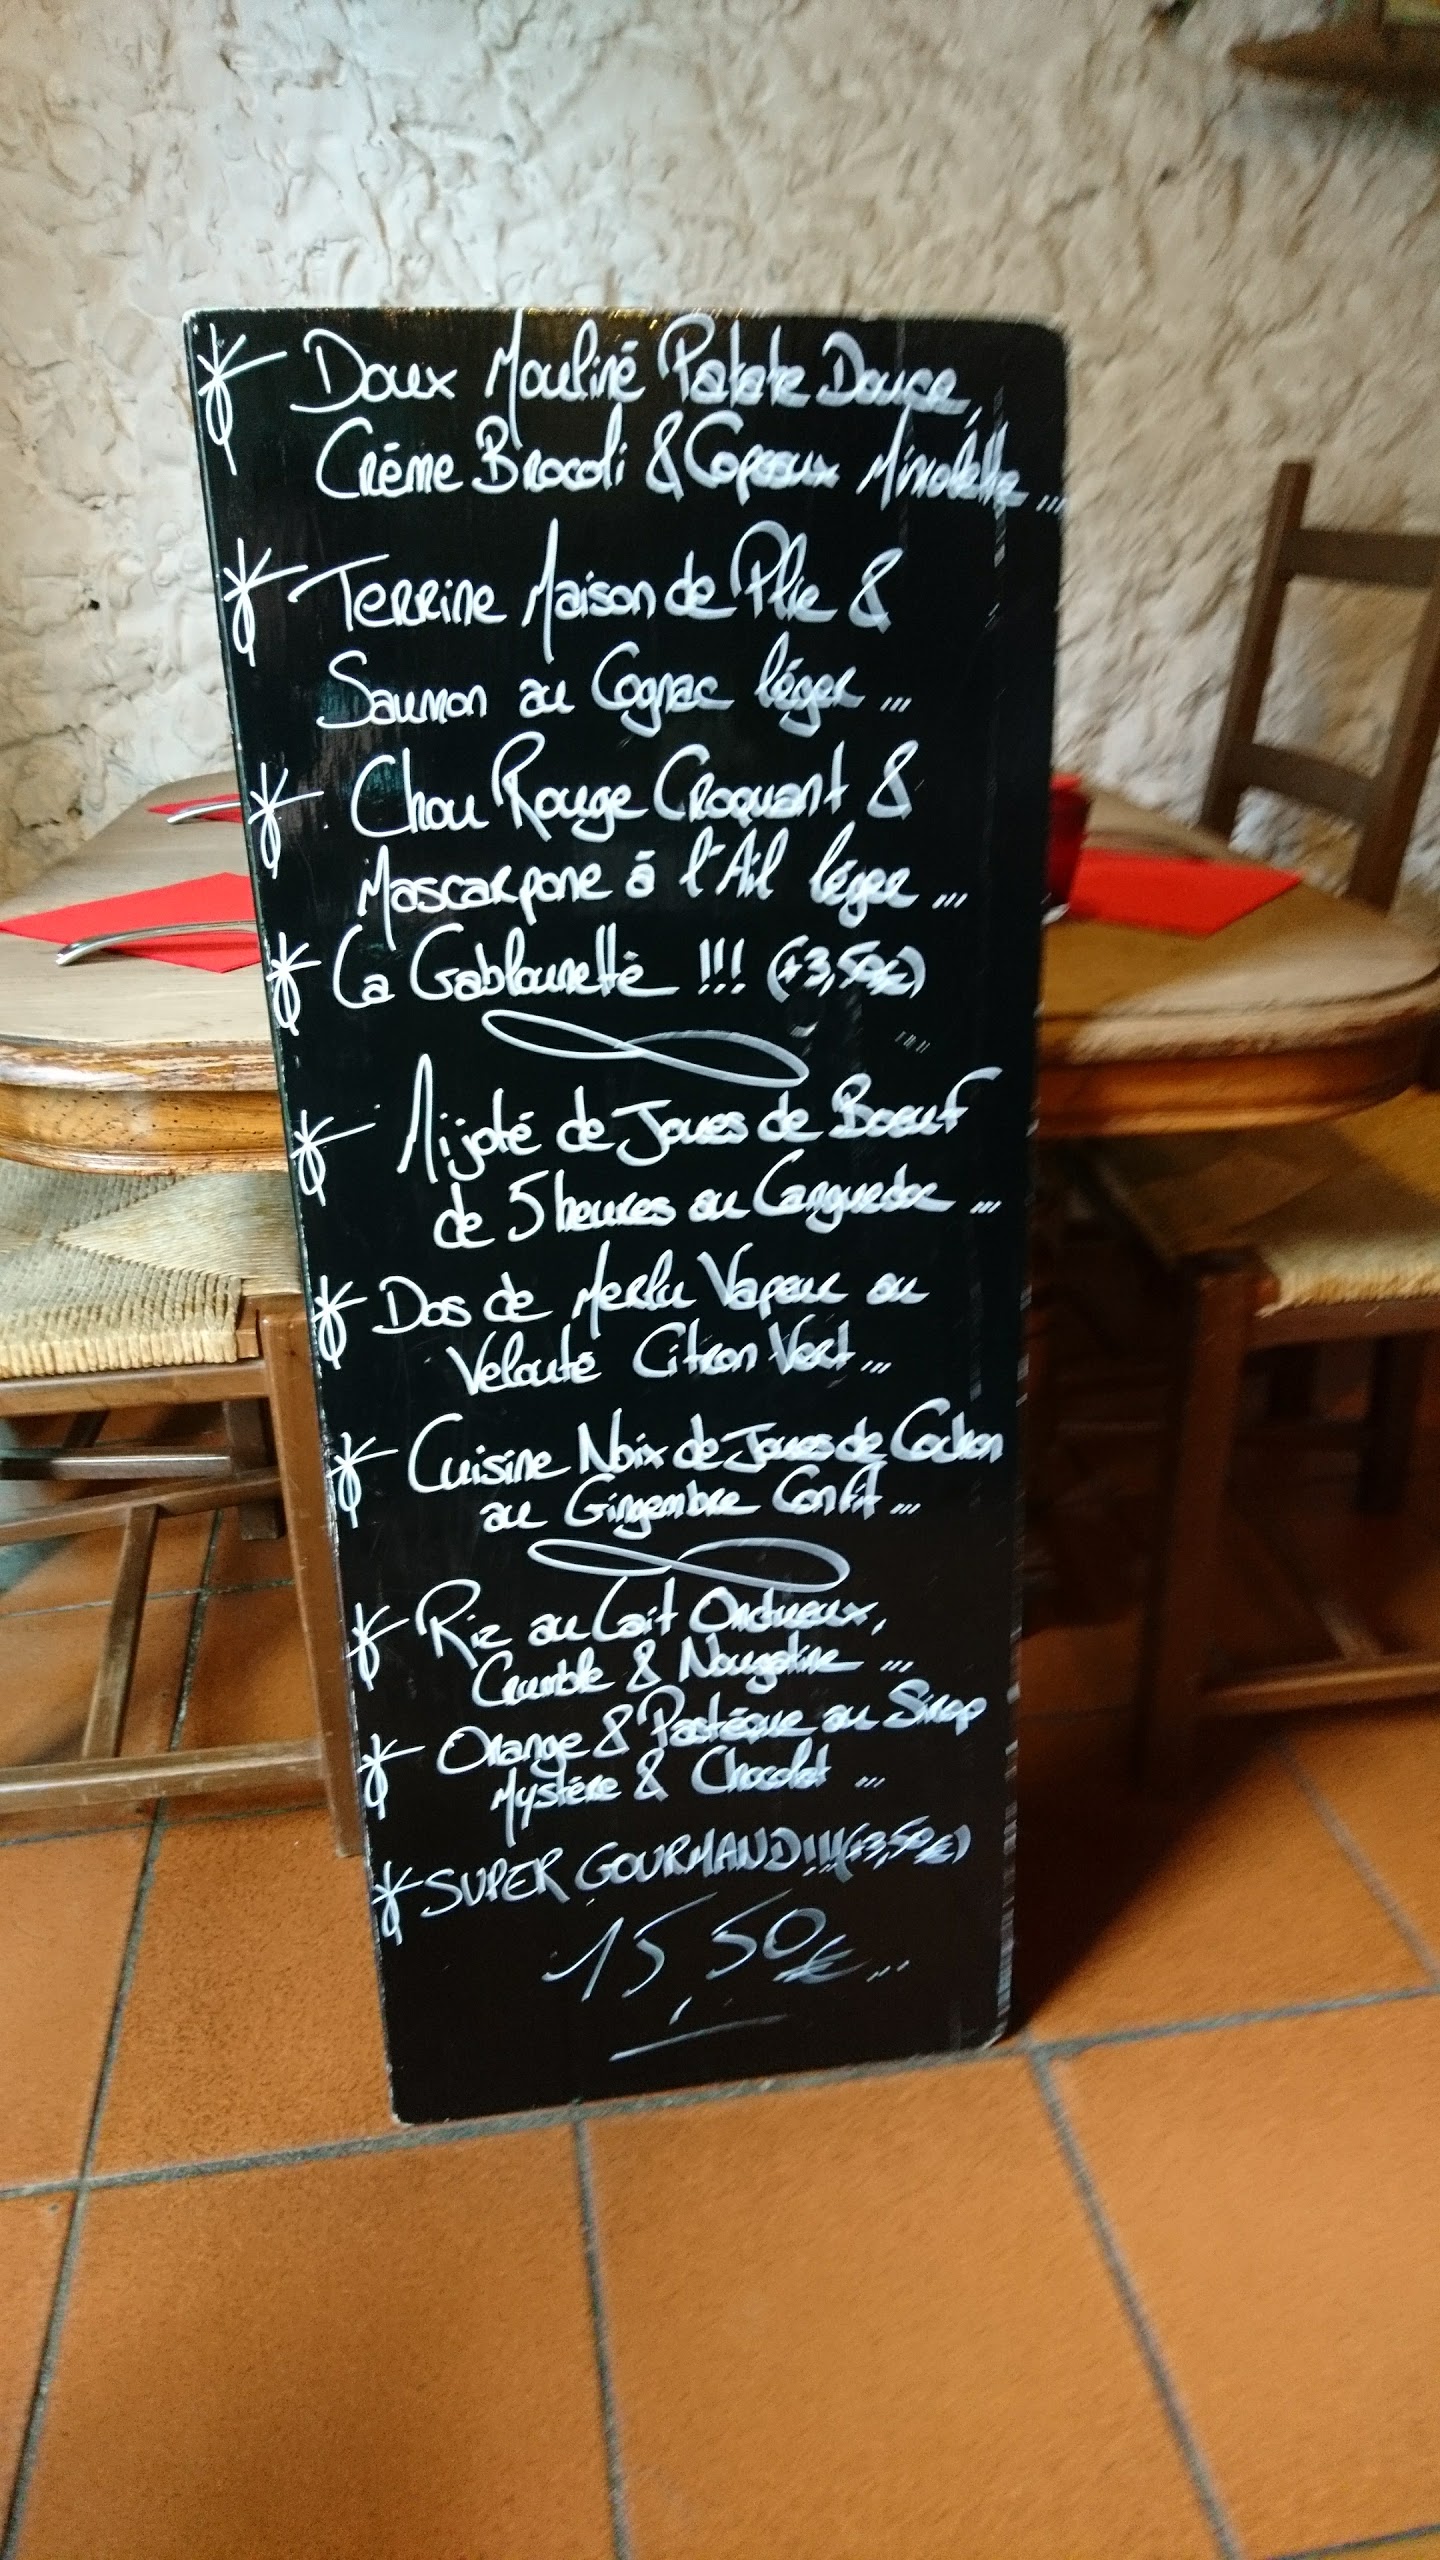 Doux Mouliné Patate Douce,
Crème Brocoli & Copeaux Mimolette ...
Terrine Maison de Plie &
Saumon au Cognac léger ...
Chou Rouge Croquant &
Mascarpone à l'Ail léger ...
La Gablounette !!! (+3,50€)
Mijoté de Joues de Boeuf
de 5 heures au Languedoc ...
Dos de Merlu Vapeur au
Velouté Citron Vert ...
Cuisine Noix de Joues de Cochon
au Gingembre Confit ...
Riz au Lait Onctueux,
Crumble & Nougatine ...
Orange & Pastèque au Sirop
Mystère & Chocolat ...
SUPER GOURMAND!!! (+3,50€)
15,50€...